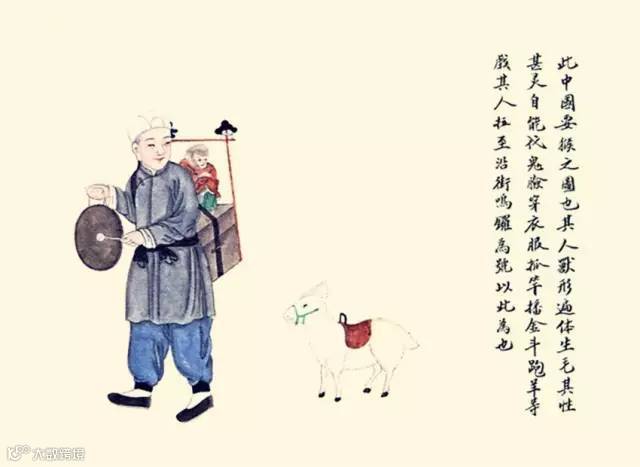 此中國耍猴之圖也其人獸形遍体生毛其性
甚灵自能代鬼臉穿衣服抓竿播金斗跑羊等
戲其人拉至沿街鳴鑼為號以此為也
大数跨境